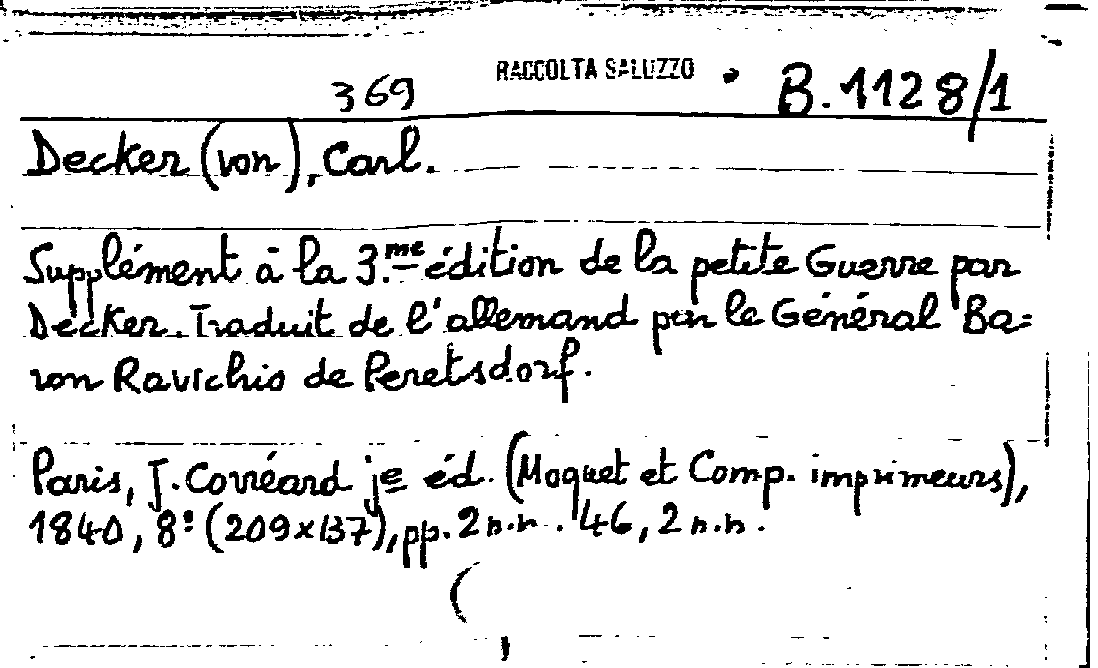 369 RACCOLTA SALUZZO B.1128/1
Decker (von), Carl.
Supplément à la 3.me édition de la petite Guerre par
Decker. Traduit de l'allemand par le Général Ba=
ron Ravichio de Peretsdorf.
Paris, J. Corréard je éd. (Moquet et Comp. imprimeurs),
1840, 8º (209x137), pp. 2 n.n. 46, 2 n.n.
(